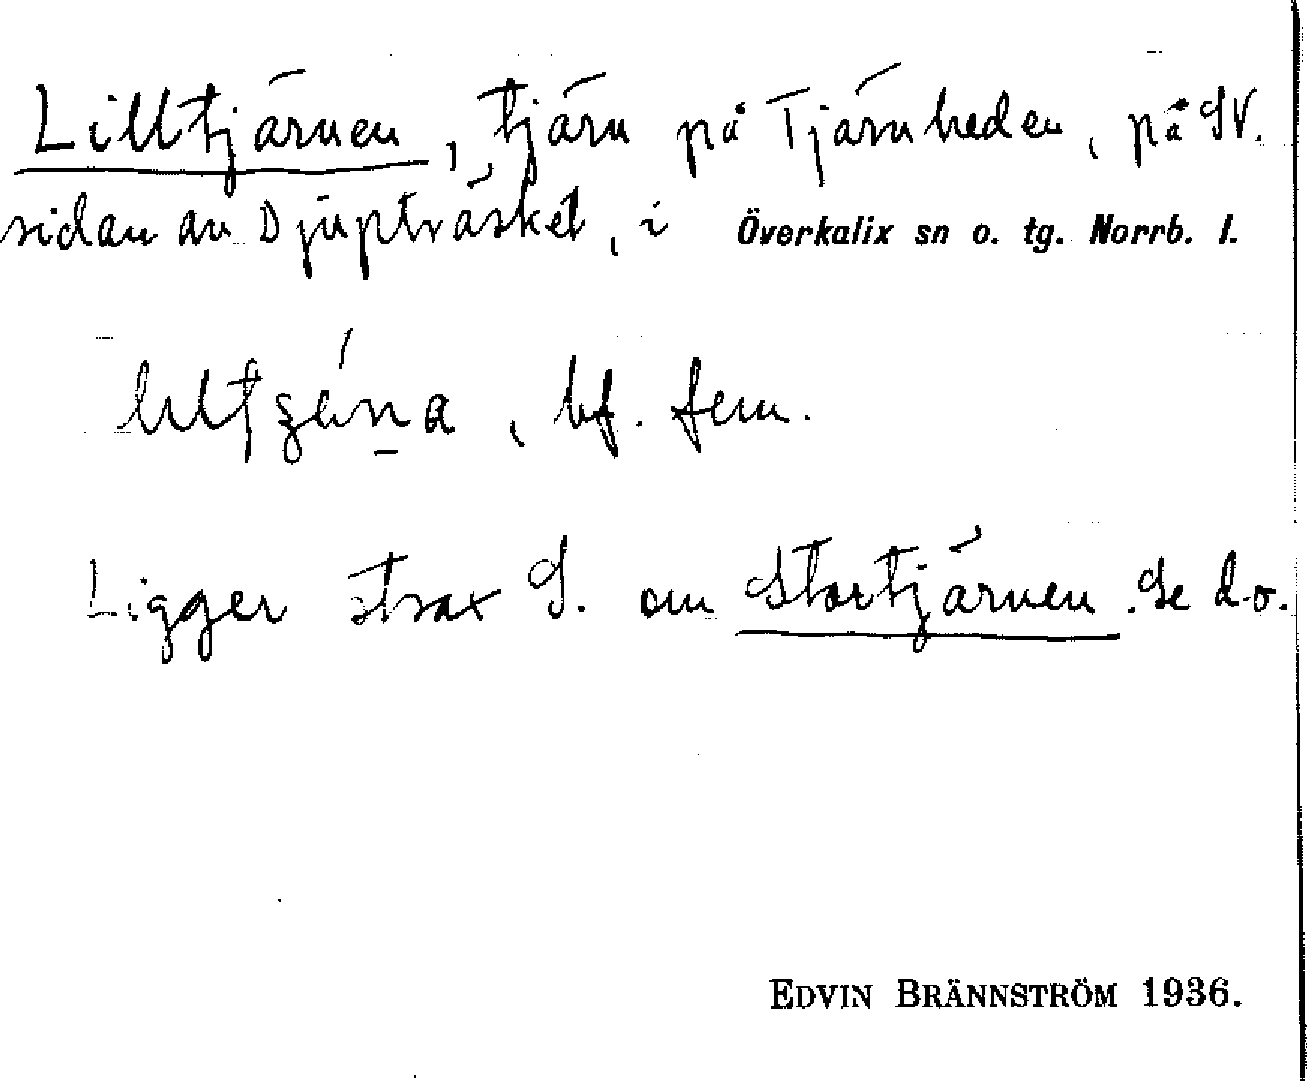 Lilltjärnen, tjärn på Tjärnheden, på SV.
sidan av Djupträsket, i Överkalix sn o. tg. Norrb. l.
, bf. fem.
Ligger strax S. om Stortjärnen. Se d.o.
EDVIN BRÄNNSTRÖM 1936.